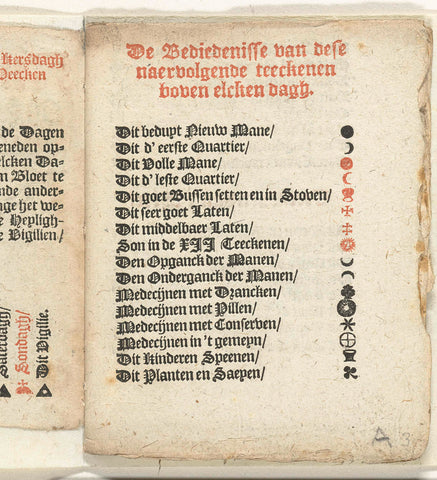 kersdagh
Teecken
de Dagen
eneden op-
elcken Da-
n Bloet te
nde ander-
nge het we-
e Heyligh-
e Vigilien/
Saterdagh/
Sondagh/
Dit Vigilie.
De Bediedenisse van dese
naervolgende teeckenen
boven elcken dagh.
Dit beduyt Nieuw Mane/
Dit d' eerste Quartier/
Dit Volle Mane/
Dit d' leste Quartier/
Dit goet Bussen setten en in Stoven/
Dit seer goet Laten/
Dit middelbaer Laten/
Son in de XII Teeckenen/
Den Opganck der Manen/
Den Onderganck der Manen/
Medecijnen met Drancken/
Medecijnen met Pillen/
Medecijnen met Conserven/
Medecijnen in 't gemeyn/
Dit Kinderen Speenen/
Dit Planten en Saeyen/
A 3